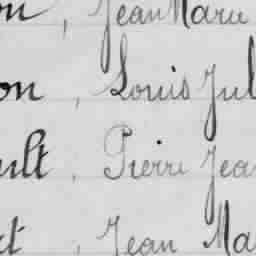 on, Jean Marie
on, Louis Jul
ult, Pierre Jean
t, Jean Ma